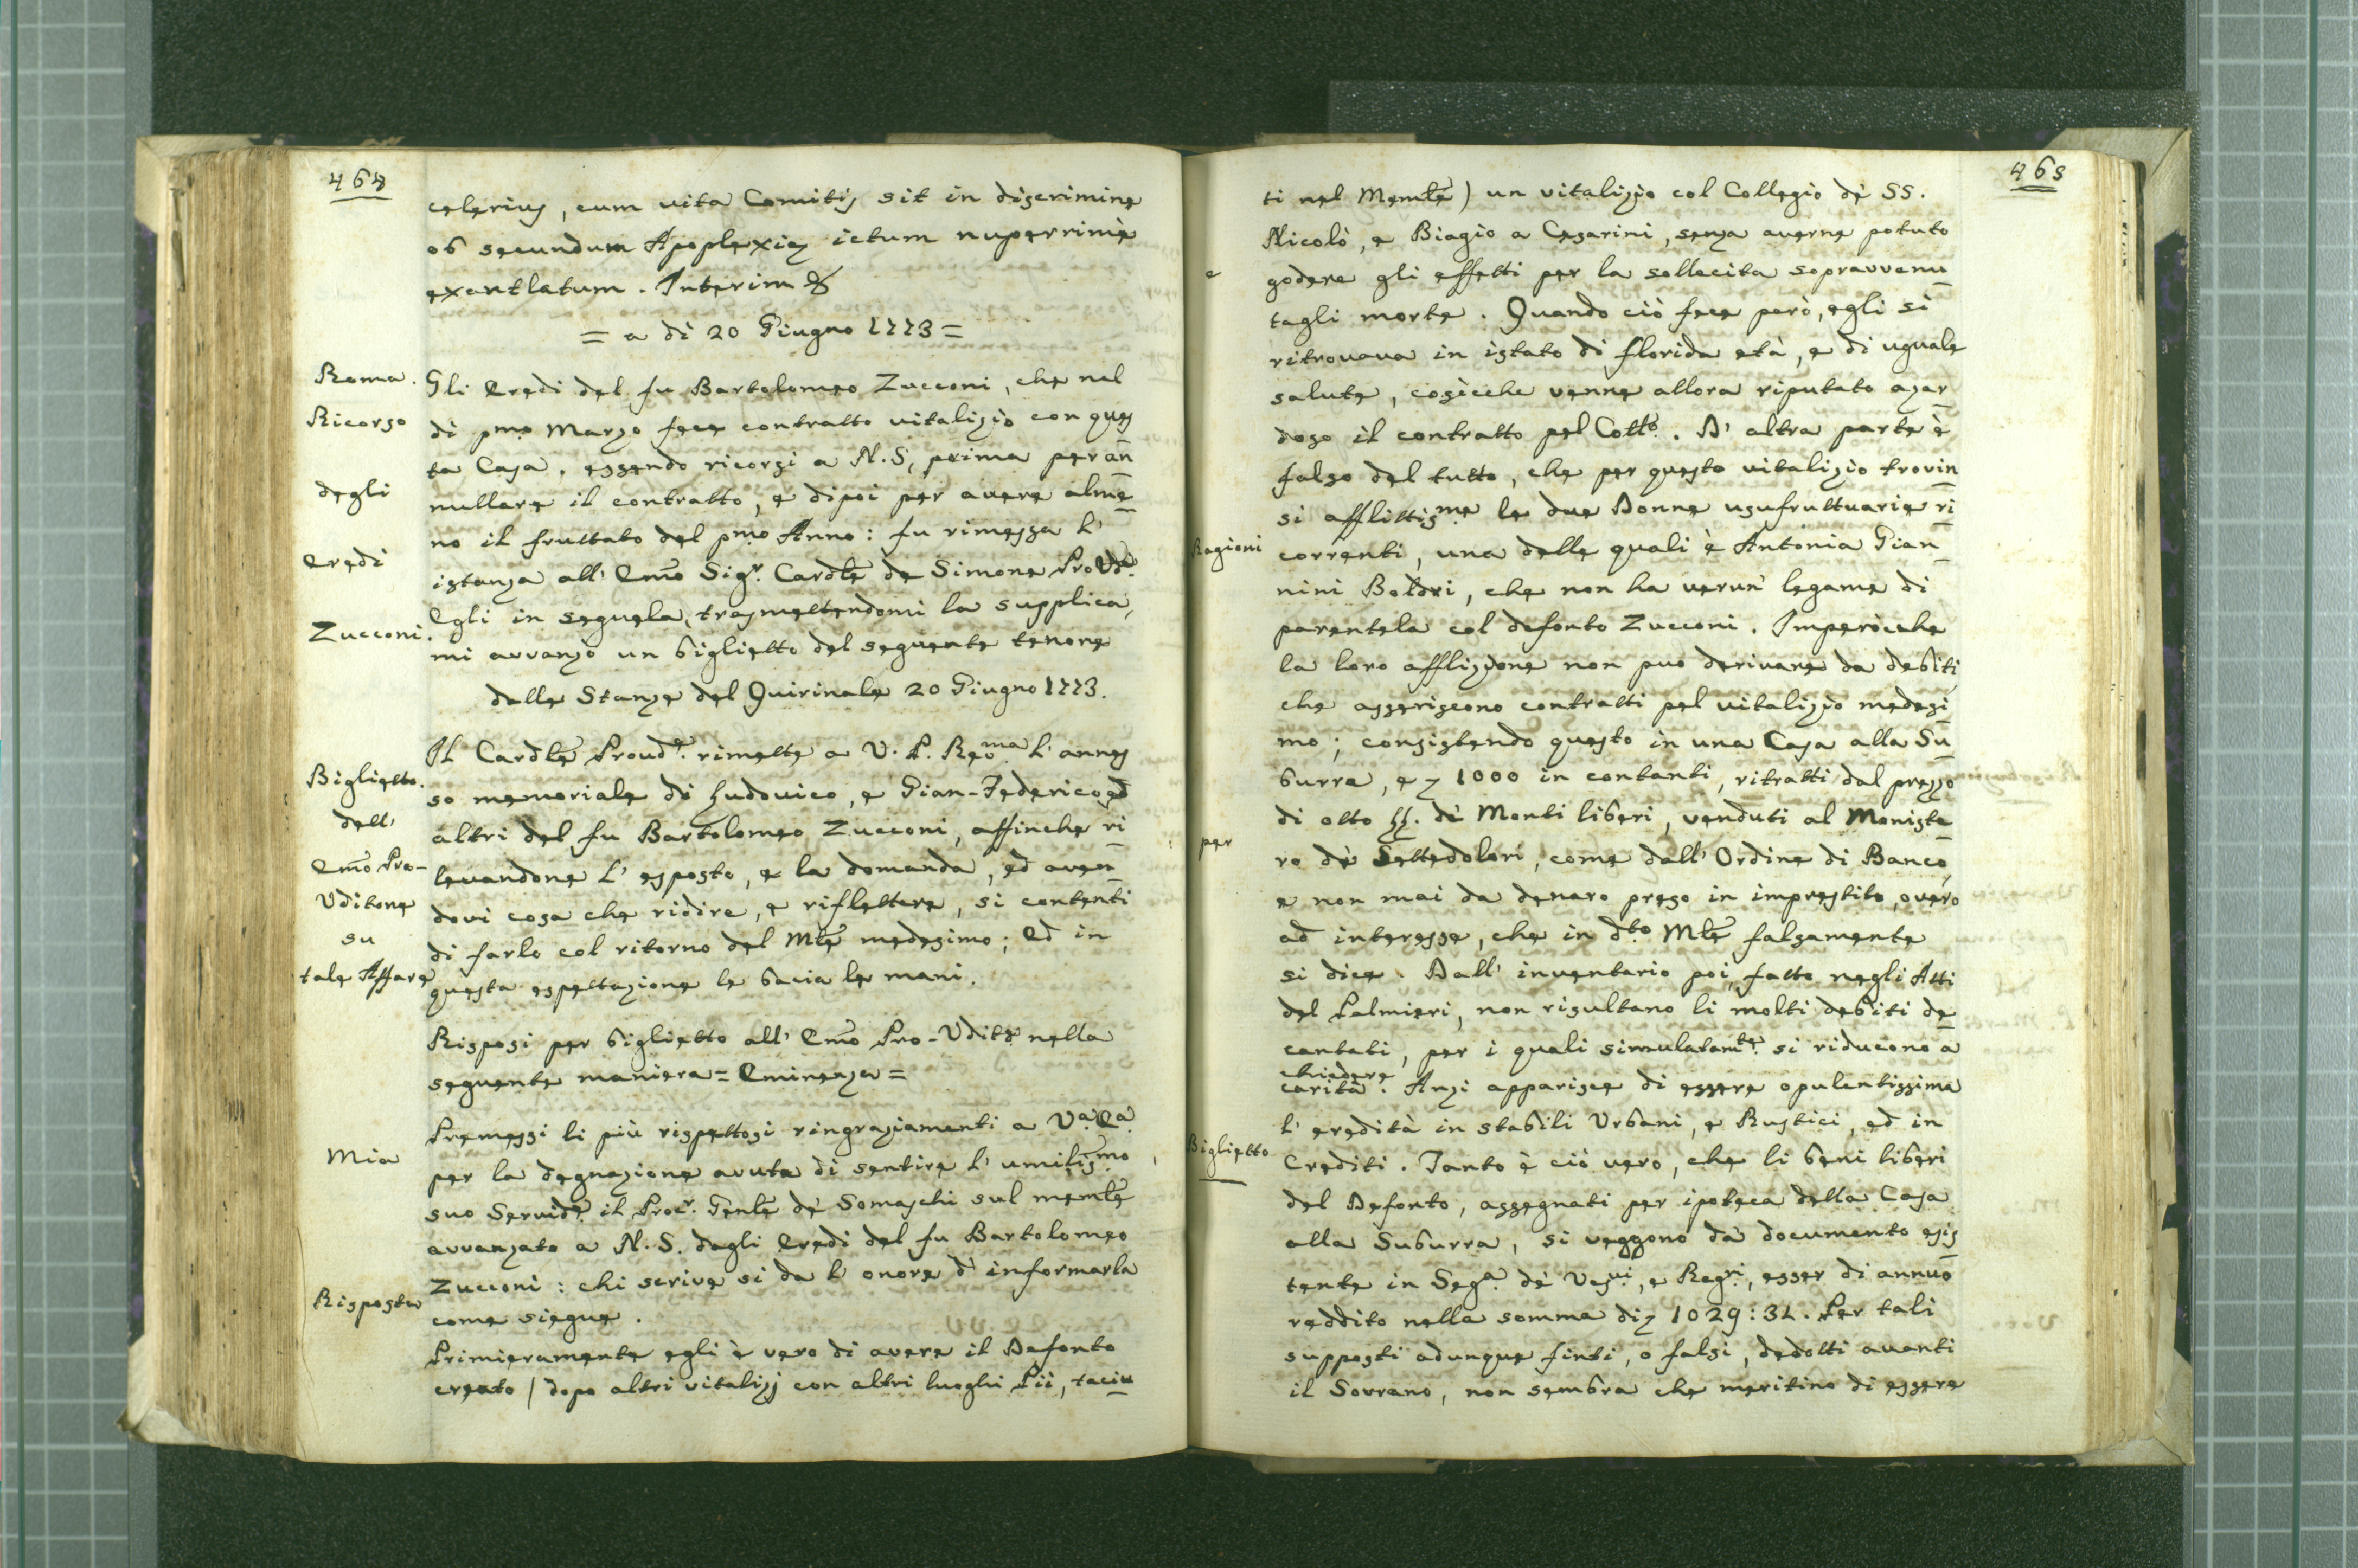 464
celerius, cum vita Comitis sit in discrimine
ob secundum Apoplexiæ ictum nuperrimè
exantlatum. Interim &
= a dì 20 Giugno 1773 =
Roma.
Ricorso
degli
Eredi
Zucconi.
Gli Eredi del fu Bartolomeo Zucconi, che nel
dì pmo Marzo fece contratto vitalizio con ques
ta Casa, essendo ricorsi a N.S, prima per an
nullare il contratto, e dipoi per avere alme
no il fruttato del pmo Anno: fu rimessa l'
istanza all' Emo Sigr. Cardle de Simone ProVdre.
Egli in seguela, trasmettendomi la supplica,
mi avvanzò un biglietto del seguente tenore
dalle Stanze del Quirinale 20 Giugno 1773.
Biglietto.
dell'
Emo Pro-
Uditore
su
tale Affare
Il Cardle Proudre. rimette a V. P. Revma l' annes
so memoriale di Ludovico, e Gian-Federico, ed
altri del fu Bartolomeo Zucconi, affinche ri
levandone l' esposto, e la domanda, ed aven
dovi cosa che ridire, e riflettere, si contenti
di farlo col ritorno del Mle medesimo; Ed in
questa espettazione le bacia le mani.
Risposi per biglietto all' Emo Pro-Uditre nella
seguente maniera = Eminenza =
Mia
Risposta
Premessi li più rispettosi ringraziamenti a Va. Ea.
per la degnazione avuta di sentire l' umilismo
suo Servidre. il Procr. Genle de Somaschi sul memle
avvanzato a N.S. dagli Eredi del fu Bartolomeo
Zucconi: chi scrive si da l' onore d' informarla
come siegue.
Primieramente egli è vero di avere il Defonto
creato / dopo altri vitalizj con altri luoghi Pii, taciu
465
e
Ragioni
per
Biglietto
ti nel Memle) un vitalizio col Collegio dè SS.
Nicolò, e Biagio a Cesarini, senza averne potuto
godere gli effetti per la sollecita sopravvenu
tagli morte. Quando ciò fece però, egli si
ritrovava in istato di florida età, e di uguale
salute, cosicche venne allora riputato azar
doso il contratto pel Collo. D' altra parte è
falso del tutto, che per questo vitalizio trovin
si afflittisme le due Donne usufruttuarie ri
correnti, una delle quali è Antonia Gian
nini Boldri, che non ha verun' legame di
parentela col defonto Zucconi. Imperòcche
la loro afflizione non puo derivare da debiti,
che asseriscono contratti pel vitalizio medesi
mo; consistendo questo in una Casa alla Su
burra, e 1000 in contanti, ritratti dal prezzo
di otto LL. di Monti liberi, venduti al Moniste
ro dè Settedolori, come dall' Ordine di Banco,
e non mai da denaro preso in imprestito, overo
ad interesse, che in dto Mle falsamente
si dice. Dall' inventario poi, fatto negli Atti
del Palmieri, non risultano li molti debiti de
cantati, per i quali simulatamte. si riducono a
chiedere
carità. Anzi apparisce di essere opulentissima
l' eredità in stabili Urbani, e Rustici, ed in
Crediti. Tanto è ciò vero, che li beni liberi
del Defonto, assegnati per ipoteca della Casa
alla Suburra, si veggono da documento esis
tente in Sega. dè Vesvi, e Regri, esser di annuo
reddito nella somma di 1029:31. Per tali
supposti adunque finti, o falsi, dedotti avanti
il Sovrano, non sembra che meritino di essere